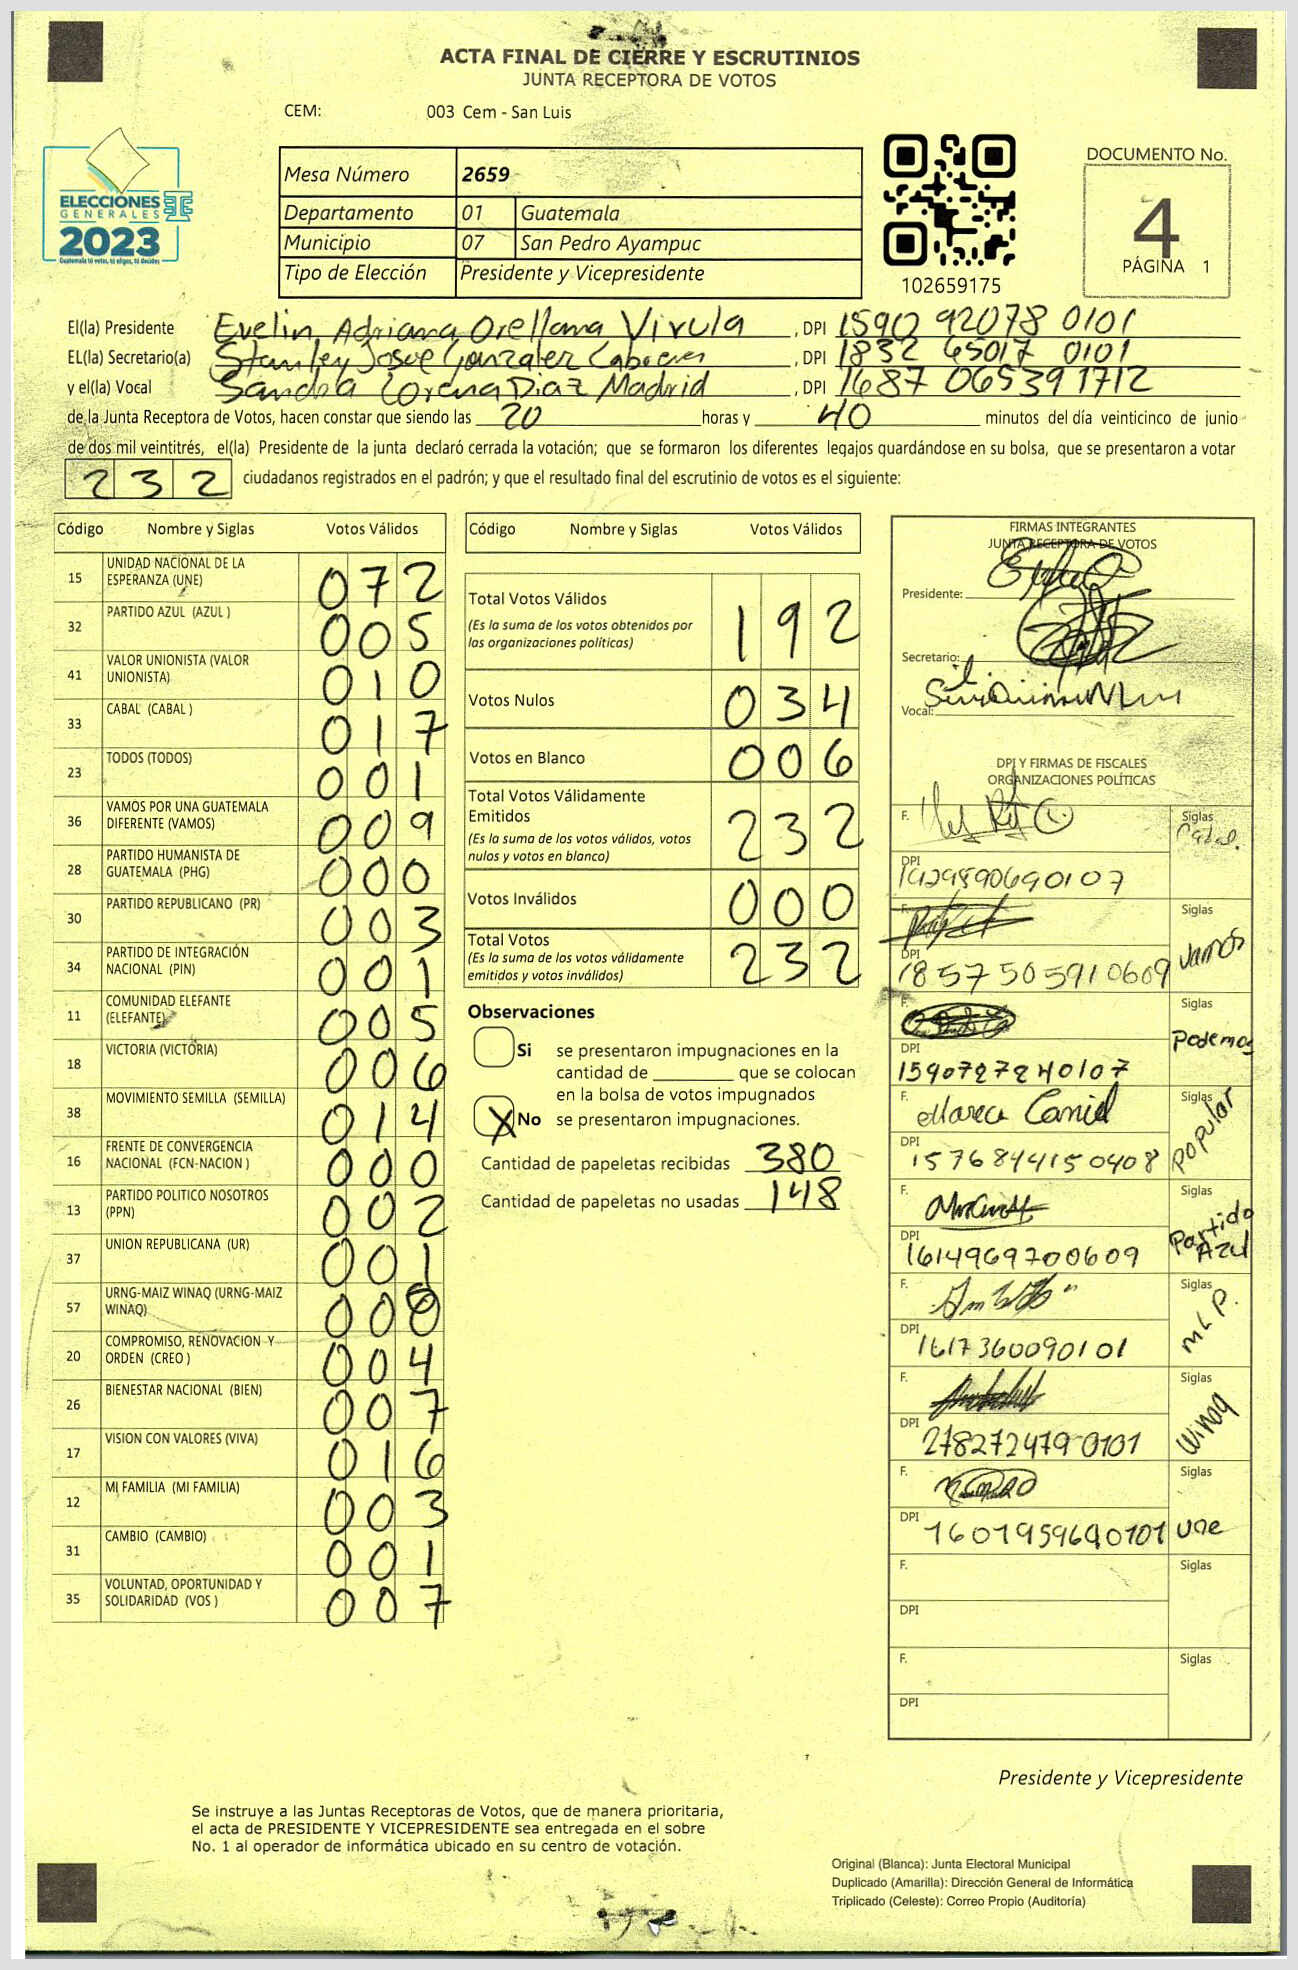 ACTA FINAL DE CIERRE Y ESCRUTINIOS
JUNTA RECEPTORA DE VOTOS
CEM: 003 Cem - San Luis
ELECCIONES
GENERALES
2023
Guatemala tú votas, tú eliges, tú decides
Mesa Número 2659
Departamento 01 Guatemala
Municipio 07 San Pedro Ayampuc
Tipo de Elección Presidente y Vicepresidente
102659175
DOCUMENTO No.
4
PÁGINA 1
El(la) Presidente Evelin Adriana Orellana Virula, DPI 1590 92078 0101
EL(la) Secretario(a) Stanley Josue Gonzalez, DPI 1832 65017 0101
y el(la) Vocal Sandra Lorena Diaz Madrid, DPI 1687 06539 1712
de la Junta Receptora de Votos, hacen constar que siendo las 20 horas y 40 minutos del día veinticinco de junio
de dos mil veintitrés, el(la) Presidente de la junta declaró cerrada la votación; que se formaron los diferentes legajos quardándose en su bolsa, que se presentaron a votar
232 ciudadanos registrados en el padrón; y que el resultado final del escrutinio de votos es el siguiente:
Código Nombre y Siglas Votos Válidos
15 UNIDAD NACIONAL DE LA
ESPERANZA (UNE) 072
32 PARTIDO AZUL (AZUL ) 005
41 VALOR UNIONISTA (VALOR
UNIONISTA) 010
33 CABAL (CABAL ) 017
23 TODOS (TODOS) 001
36 VAMOS POR UNA GUATEMALA
DIFERENTE (VAMOS) 009
28 PARTIDO HUMANISTA DE
GUATEMALA (PHG) 000
30 PARTIDO REPUBLICANO (PR) 003
34 PARTIDO DE INTEGRACIÓN
NACIONAL (PIN) 001
11 COMUNIDAD ELEFANTE
(ELEFANTE) 005
18 VICTORIA (VICTORIA) 006
38 MOVIMIENTO SEMILLA (SEMILLA) 014
16 FRENTE DE CONVERGENCIA
NACIONAL (FCN-NACION ) 000
13 PARTIDO POLITICO NOSOTROS
(PPN) 002
37 UNION REPUBLICANA (UR) 001
57 URNG-MAIZ WINAQ (URNG-MAIZ
WINAQ) 008
20 COMPROMISO, RENOVACION Y
ORDEN (CREO ) 004
26 BIENESTAR NACIONAL (BIEN) 007
17 VISION CON VALORES (VIVA) 016
12 MI FAMILIA (MI FAMILIA) 003
31 CAMBIO (CAMBIO) 001
35 VOLUNTAD, OPORTUNIDAD Y
SOLIDARIDAD (VOS ) 007
Código Nombre y Siglas Votos Válidos
Total Votos Válidos 192
(Es la suma de los votos obtenidos por
las organizaciones políticas)
Votos Nulos 034
Votos en Blanco 006
Total Votos Válidamente
Emitidos 232
(Es la suma de los votos válidos, votos
nulos y votos en blanco)
Votos Inválidos 000
Total Votos 232
(Es la suma de los votos válidamente
emitidos y votos inválidos)
Observaciones
Si se presentaron impugnaciones en la
cantidad de ________ que se colocan
en la bolsa de votos impugnados
X No se presentaron impugnaciones.
Cantidad de papeletas recibidas 380
Cantidad de papeletas no usadas 148
FIRMAS INTEGRANTES
JUNTA RECEPTORA DE VOTOS
Presidente:
Secretario:
Vocal:
DPI Y FIRMAS DE FISCALES
ORGANIZACIONES POLÍTICAS
F. Siglas Cabal.
DPI 1929890690107
F. Siglas Vamos
DPI 1857505910609
F. Siglas Podemos
DPI 1590727240107
F. Siglas Popular
DPI 1576844150408
F. Siglas Partido Azul
DPI 1614969700609
F. Siglas M L P.
DPI 1617360090101
F. Siglas Winaq
DPI 2782724790101
F. Siglas Une
DPI 1601959690101
F. Siglas
DPI
F. Siglas
DPI
Presidente y Vicepresidente
Se instruye a las Juntas Receptoras de Votos, que de manera prioritaria,
el acta de PRESIDENTE Y VICEPRESIDENTE sea entregada en el sobre
No. 1 al operador de informática ubicado en su centro de votación.
Original (Blanca): Junta Electoral Municipal
Duplicado (Amarilla): Dirección General de Informática
Triplicado (Celeste): Correo Propio (Auditoría)